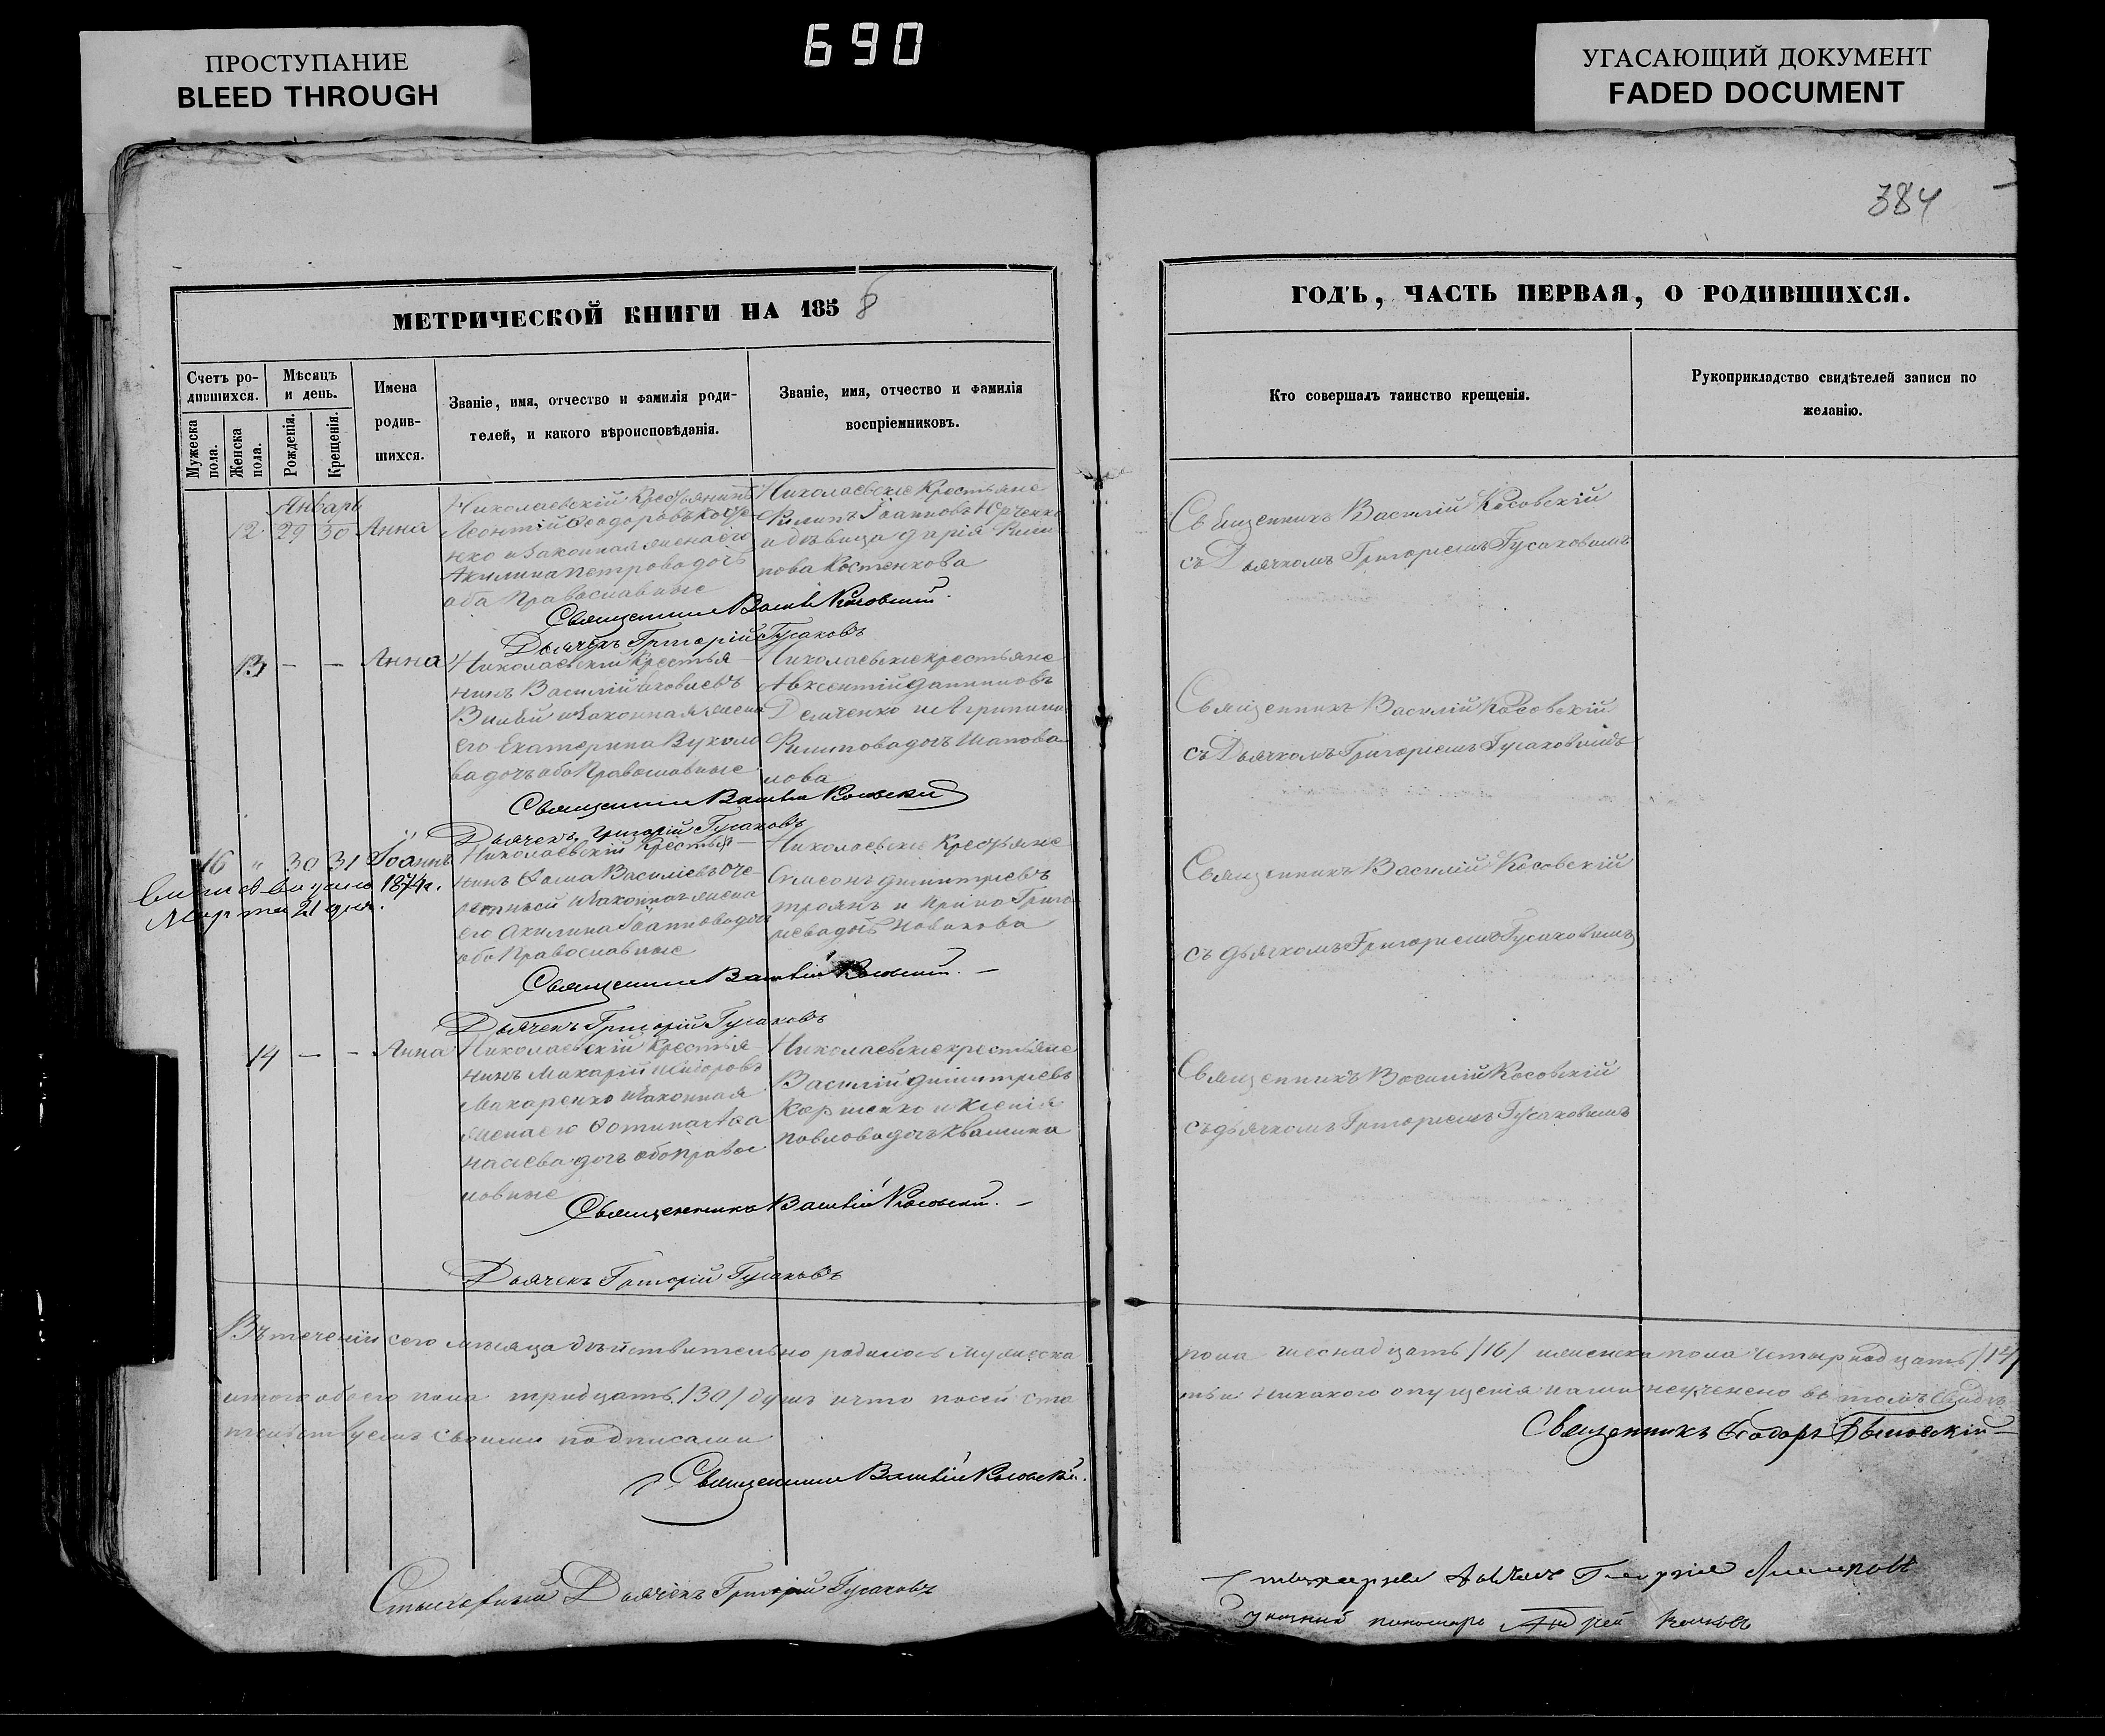 690
ПРОСТУПАНИЕ
BLEED THROUGH
УГАСАЮЩИЙ ДОКУМЕНТ
FADED DOCUMENT
384
МЕТРИЧЕСКОЙ КНИГИ НА 1858
Счетъ ро-
дившихся.
Мѣсяцъ
и день.
Мужеска
пола.
Женска
пола.
Рожденія.
Крещенія.
Имена
родив-
шихся.
Званіе, имя, отчество и фамилія роди-
телей, и какого вѣроисповѣданія.
Званіе, имя, отчество и фамилія
воспріемниковъ.
Январь
12 29 30 Анна
Николаевскій Крестьянинъ
Леонтій Ѳеодоровъ Косте-
нко и законная жена его
Акилина Петрова дочь
оба Православные
Николаевскіе Крестьяне
Филипъ Іоанновъ Юрченко
и дѣвица Дарія Фили
пова Костенкова
Священникъ Василій Косовскій
Дьячекъ Григорій Гусаковъ
13 — — Анна
Николаевскій Крестья-
нинъ Василій Яковлевъ
и законная жена
его Екатерина Вукол
ва дочь оба Православные
Николаевскіе крестьяне
Авксентій Даниловъ
Демченко и Агрипина
Филипова дочь Шапова-
лова
Священникъ Василій Косовскій
Дьячекъ Григорій Гусаковъ
16 " 30 31 Іоаннъ
1874г.
Марта 21 дня.
Николаевскій Крестья-
нинъ Ѳома Василіевъ
и законная жена
его Акилина Іоаннова дочь
оба Православные
Николаевскіе Крестьяне
Симеонъ Димитріевъ
Троянъ и Ирина Григо
ріева дочь Новикова
Священникъ Василій Косовскій. —
Дьячекъ Григорій Гусаковъ
14 — — Анна
Николаевскій Крестья
нинъ Макарій Исидоровъ
Макаренко и законная
жена его Фотинія Аѳа
насіева дочь оба Правос
лавные
Николаевскіе крестьяне
Василій Димитріевъ
и Ксенія
Павлова дочь Квашина
Священникъ Василій Косовскій. —
Дьячекъ Григорій Гусаковъ
Въ теченіи сего мѣсяца дѣйствительно родилось мужеска
итого обоего пола тридцать /30/ душъ и что по сей ста
тельствуемъ своими подписами
Священникъ Василій Косовскій.
Стихарный Дьячекъ Григорій Гусаковъ
ГОДЪ, ЧАСТЬ ПЕРВАЯ, О РОДИВШИХСЯ.
Кто совершалъ таинство крещенія.
Рукоприкладство свидѣтелей записи по
желанію.
Священникъ Василій Косовскій
съ Дьячкомъ Григоріемъ Гусаковымъ
Священникъ Василій Косовскій
съ Дьячкомъ Григоріемъ Гусаковымъ
Священникъ Василій Косовскій
съ дьячкомъ Григоріемъ Гусаковымъ
Священникъ Василій Косовскій
съ дьячкомъ Григоріемъ Гусаковымъ
пола шеснадцать /16/ и женска пола четырнадцать /14/
тьи никакого опущенія нами неучинено въ томъ свидѣ
Священникъ Ѳеодоръ
Стихарный Дьячекъ Георгій
Указный пономарь Андрей